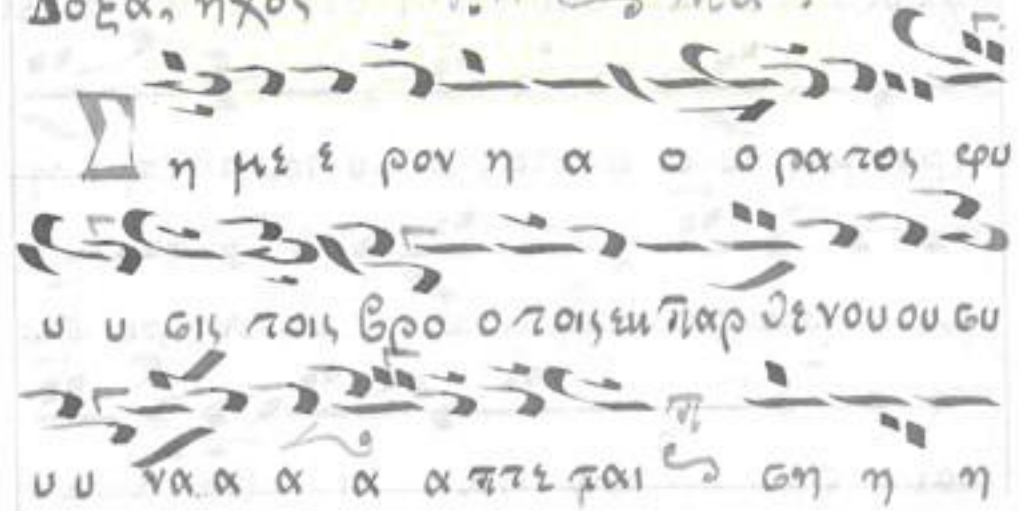 Δόξα, ἦχος
Σ η με ε ρον η α ο ο ρα τος φυ
υ υ σις τοις βρο ο τοις εκ παρ θε νου ου συ
υ υ να α α α α πτε ται ση η η